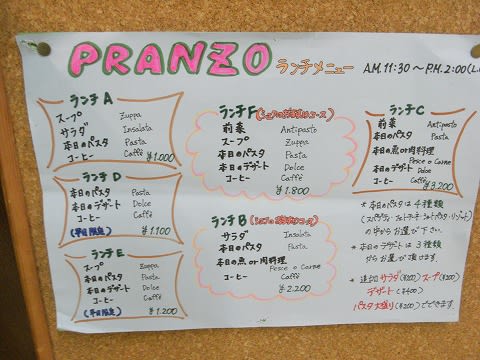 PRANZO ランチメニュー A.M.11:30〜P.M.2:00(L.
ランチ A
スープ Zuppa
サラダ Insalata
本日のパスタ Pasta
コーヒー Caffè
¥1.000
ランチ D
本日のパスタ Pasta
本日のデザート Dolce
コーヒー Caffè
(平日限定) ¥1.100
ランチ E
スープ Zuppa
本日のパスタ Pasta
本日のデザート Dolce
コーヒー Caffè
(平日限定) ¥1.200
ランチ F (シェフのお気に入りコース)
前菜 Antipasto
スープ Zuppa
本日のパスタ Pasta
本日のデザート Dolce
コーヒー Caffè
¥1.800
ランチ B
サラダ Insalata
本日のパスタ Pasta
本日の魚 or 肉料理
Pesce o Carne
コーヒー Caffè
¥2.200
ランチ C
前菜 Antipasto
本日のパスタ Pasta
本日の魚 or 肉料理
Pesce o Carne
本日のデザート Dolce
コーヒー Caffè
¥3.200
* 本日のパスタは 4種類
の中からお選び下さい。
* 本日のデザートは 3種類
からお選び頂けます。
* 追加 サラダ(¥200) スープ(¥200)
デザート(¥400)
パスタ大盛り(¥200)もできます。